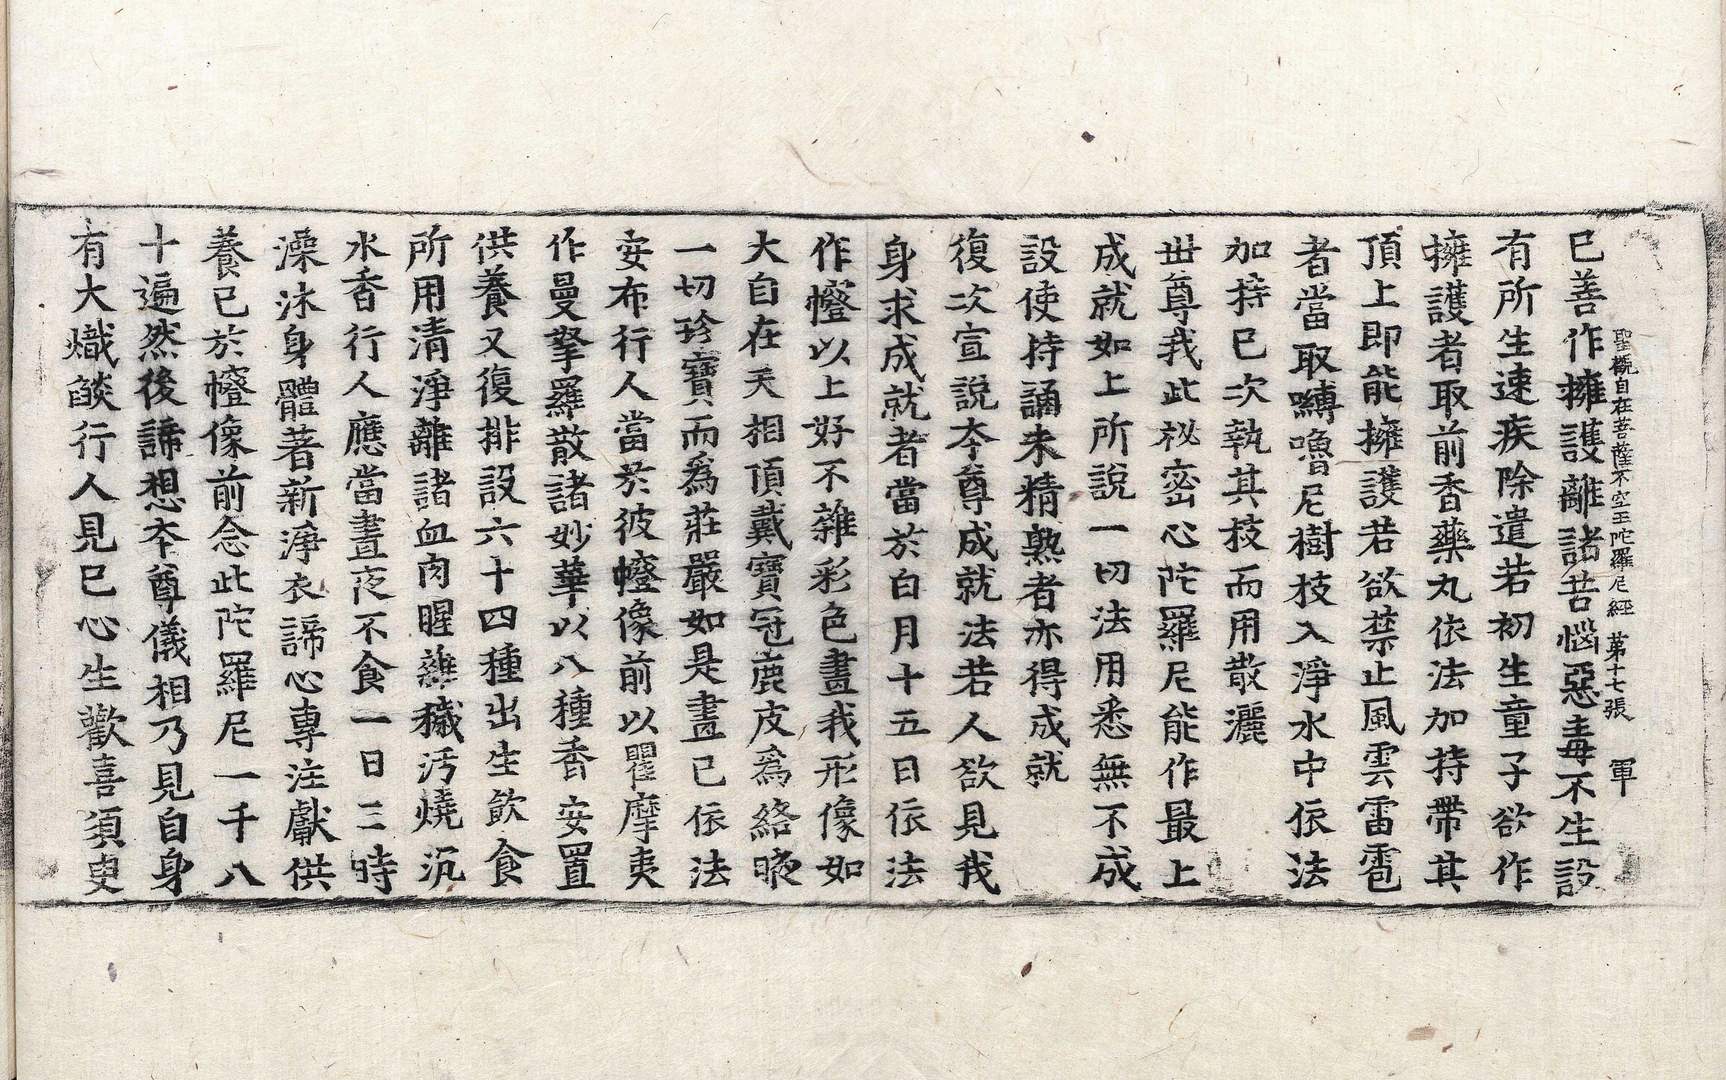 聖觀自在菩薩不空王陀羅尼經 第十七張 軍
已善作擁護離諸苦惱惡毒不生設
有所生速疾除遣若初生童子欲作
擁護者取前香藥丸依法加持帶其
頂上即能擁護若欲禁止風雲雷雹
者當取嚩嚕尼樹枝入淨水中依法
加持已次執其枝而用散灑
世尊我此祕密心陀羅尼能作最上
成就如上所說一切法用悉無不成
設使持誦未精熟者亦得成就
復次宣說夲尊成就法若人欲見我
身求成就者當於白月十五日依法
作㡧以上好不雜彩色畫我形像如
大自在天相頂戴寶冠鹿皮爲絡腋
一切珍寶而爲莊嚴如是畫已依法
安布行人當於彼㡧像前以瞿摩夷
作曼拏羅散諸妙華以八種香安置
供養又復排設六十四種出生飲食
所用清淨離諸血肉腥薉穢污燒沉
水香行人應當晝夜不食一日三時
澡沐身體著新淨衣諦心專注獻供
養已於㡧像前念此陀羅尼一千八
十遍然後諦想夲尊儀相乃見自身
有大熾燄行人見已心生歡喜須臾